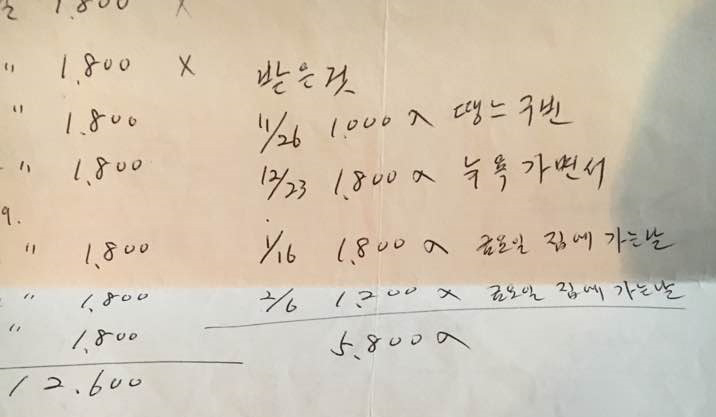 1.800 X
" 1.800 X
" 1.800
" 1.800
9.
" 1.800
" 1.800
" 1.800
12.600
받은것
11/26 1.000 땡스 구빈
12/23 1.800 뉴욕 가면서
1/16 1.800 금요일 집에 가는날
2/6 1.200 금요일 집에 가는날
5.800